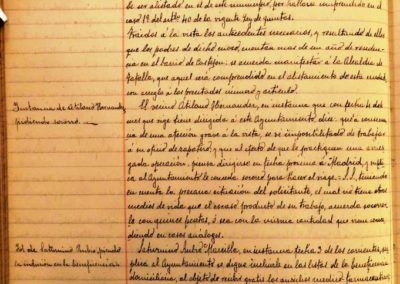 ser alistado en el de este municipio, por hallarse comprendido en el
caso 1º del artº 40 de la vigente Ley de quintas.
Traidos á la vista los antecedentes necesarios, y resultando de ellos
que los padres de dicho mozo, cuentan mas de un año de residen-
cia en el barrio de Castejon; se acuerda manifestar á la Alcaldía de
Tafalla, que aquel será comprendido en el alistamiento de esta ciudad,
con arreglo á los precitados número y artículo.
Instancia de Atilano Hernandez,
pidiendo socorro.
El vecino Atilano Hernandez, en instancia que con fecha 1º del
mes que rige tiene dirigida á este Ayuntamiento, dice: que á consecuen-
cia de una afección grave á la vista, se vé imposibilitado de trabajar
á su oficio de zapatero, y que al efecto de que le practiquen una arries-
gada operación, piensa dirigirse en fecha próxima á Madrid, y supli-
ca al Ayuntamiento le conceda socorro para hacer el viage. S.S. teniendo
en cuenta la precaria situación del solicitante, el cual no tiene otros
medios de vida que el escaso producto de su trabajo, acuerda socorrer-
le con quince pesetas, ó sea con la misma cantidad que viene conce-
diendo en casos análogos.
Id. de Saturnino Rubio, pidiendo
su inclusión en la beneficencia.
Saturnino Rubio en instancia fecha 3 de los corrientes, su-
plica al Ayuntamiento se digne incluirle en las listas de la beneficencia
domiciliaria, al objeto de recibir gratis los auxilios médico-farmaceuticos,